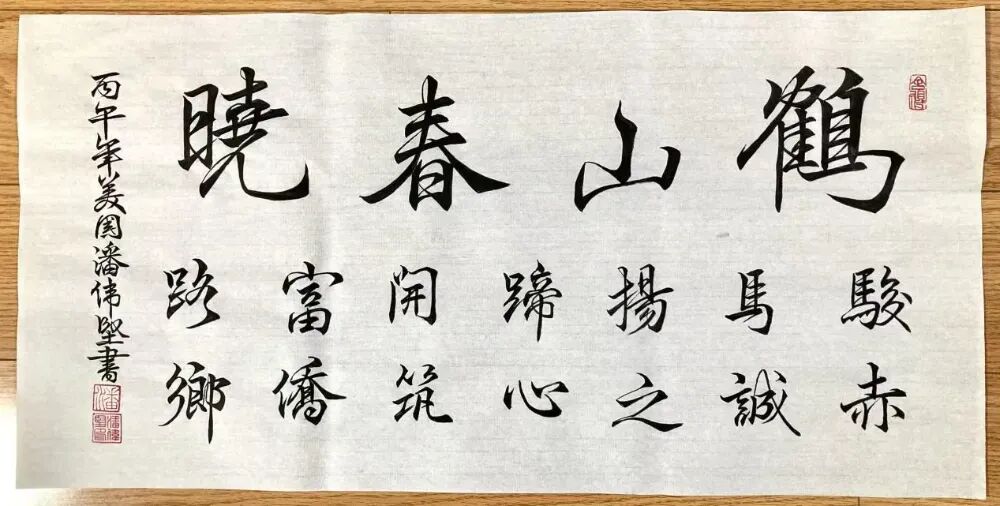 鶴山春曉
駿馬揚蹄開富路
赤誠之心筑僑鄉
丙午年美国潘伟堅書